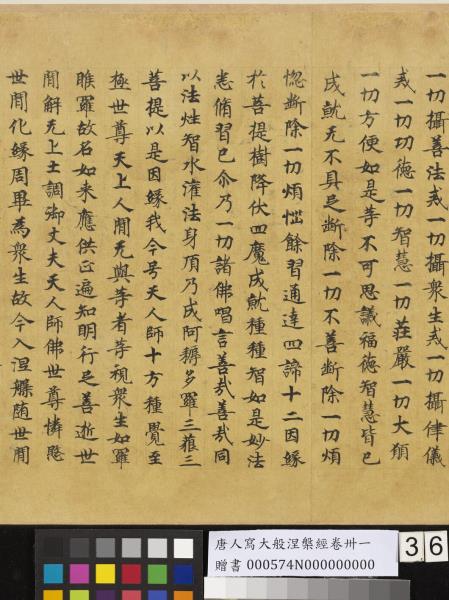 一切攝善法戒一切攝衆生戒一切攝律儀
戒一切功德一切智慧一切莊嚴一切大願
一切方便如是等不可思議福德智慧皆已
成就无不具足斷除一切不善斷除一切煩
惚斷除一切煩惱餘習通達四諦十二因緣
於菩提樹降伏四魔成就種種智如是妙法
悉脩習已尒乃一切諸佛唱言善哉善哉同
以法性智水灌法身頂乃成阿耨多羅三藐三
菩提以是因緣我今号天人師十方種覺至
極世尊天上人間无與等者等視衆生如羅
睺羅故名如来應供正遍知明行足善逝世
間解无上士調御丈夫天人師佛世尊憐愍
世間化緣周畢為衆生故今入涅槃随世間
唐人寫大般涅槃經卷卅一
贈書 000574N000000000
36